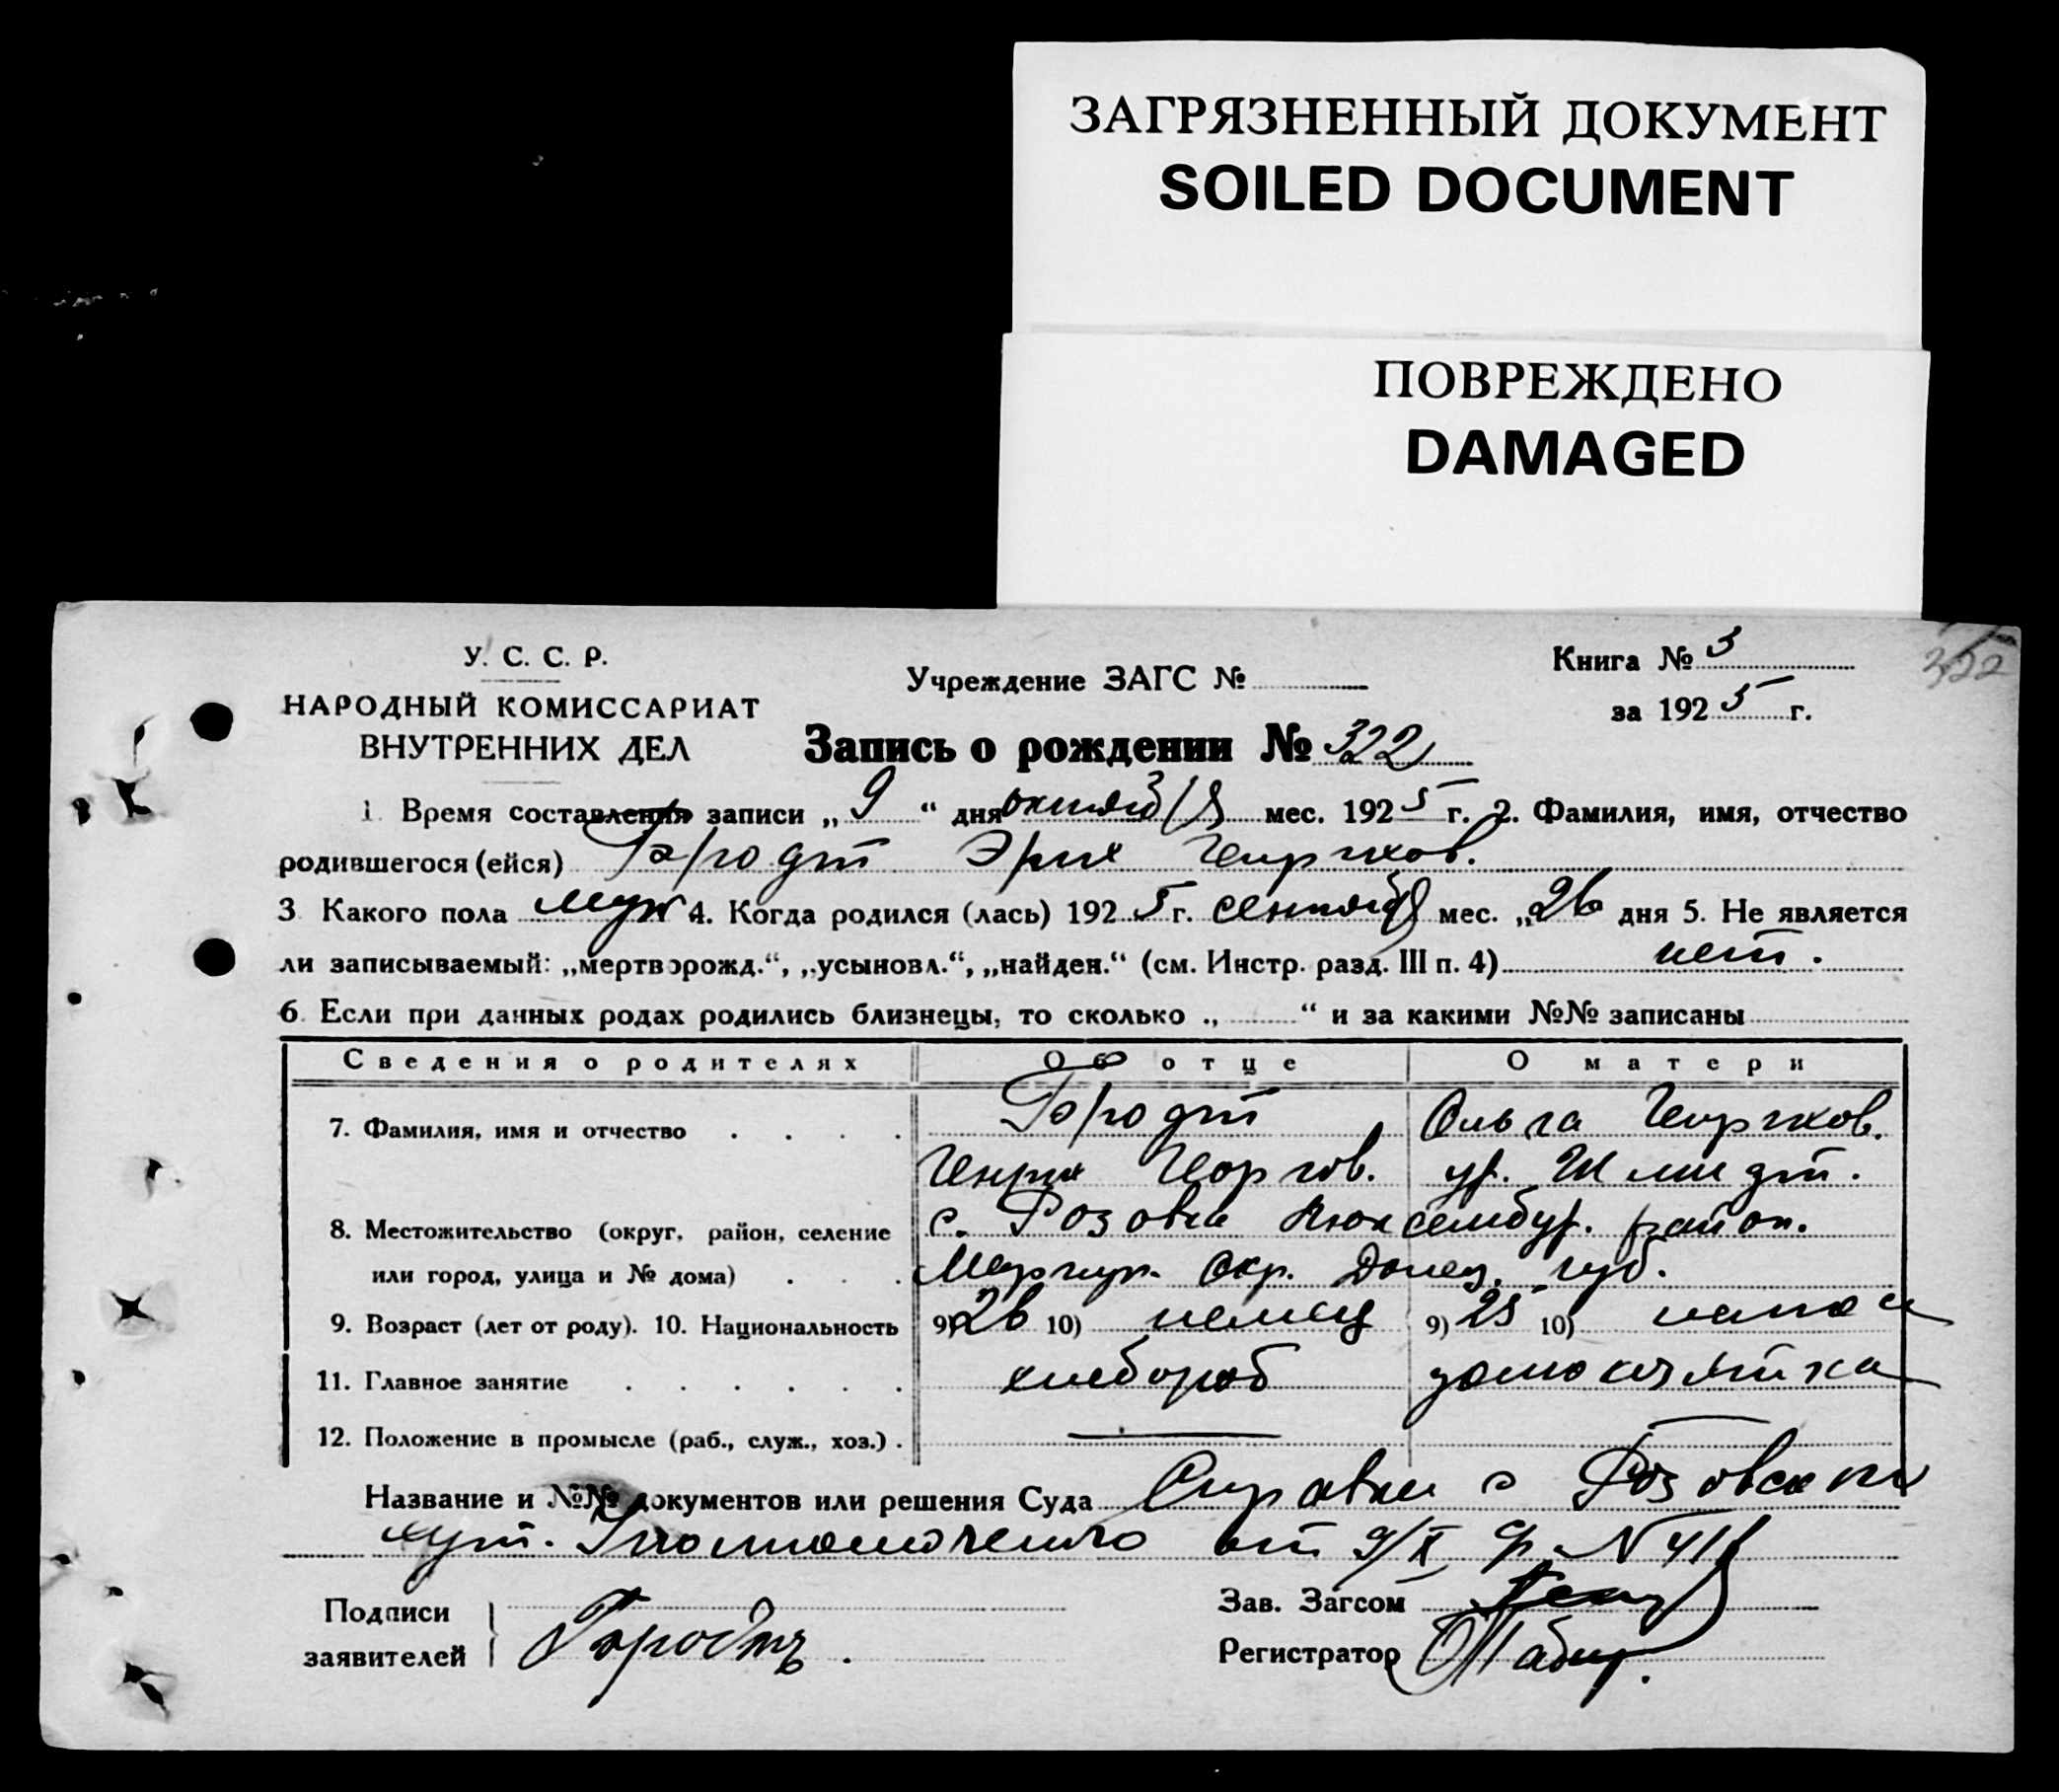 ЗАГРЯЗНЕННЫЙ ДОКУМЕНТ
SOILED DOCUMENT
ПОВРЕЖДЕНО
DAMAGED
У. С. С. Р.
НАРОДНЫЙ КОМИССАРИАТ
ВНУТРЕННИХ ДЕЛ
Учреждение ЗАГС №
Книга № 3
322
за 1925 г.
Запись о рождении № 322
1. Время составления записи „ 9 “ дня октября мес. 1925 г. 2. Фамилия, имя, отчество
родившегося (ейся) Гародт Эрих Генрихов.
3 Какого пола муж 4. Когда родился (лась) 1925 г. сентября мес. „26 дня 5. Не является
ли записываемый: „мертворожд.“, „усыновл.“, „найден.“ (см. Инстр. разд. III п. 4) нет.
6. Если при данных родах родились близнецы, то сколько „ “ и за какими №№ записаны
Сведения о родителях Об отце О матери
7. Фамилия, имя и отчество Гародт Ольга Генрихов.
Генрих Георгов. ур. Шмидт.
8. Местожительство (округ, район, селение с. Розовка Люксембур. район.
или город, улица и № дома) Мариуп. окр. Донец. губ.
9. Возраст (лет от роду). 10. Национальность 9) 26 10) немец 9) 25 10) немка
11. Главное занятие хлебороб домохозяйка
12. Положение в промысле (раб., служ., хоз.)
Название и №№ документов или решения Суда Справка с Розовский
хут. Уполномоченого от 9/X № 411
Подписи
заявителей Гародтъ.
Зав. Загсом
Регистратор